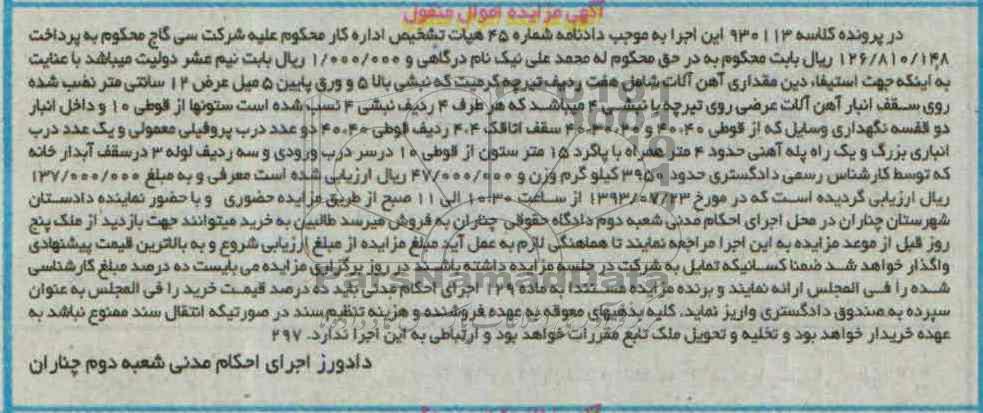 آگهی مزایده اموال منقول
در پرونده کلاسه ۹۳۰۱۱۳ این اجرا به موجب دادنامه شماره ۴۵ هیات تشخیص اداره کار محکوم علیه شرکت سی گاج محکوم به پرداخت
۱۲۶/۸۱۰/۱۴۸ ریال بابت محکوم به در حق محکوم له محمد علی نیک نام درگاهی و ۱/۰۰۰/۰۰۰ ریال بابت نیم عشر دولیت میباشد با عنایت
به اینکه جهت استیفاء دین مقداری آهن آلات شامل هفت ردیف تیرچه کرمیت که نبشی بالا ۵ و ورق پایین ۵ میل عرض ۱۲ سانتی متر نصب شده
روی سقف انبار آهن آلات عرضی روی تیرچه با نبشی ۴ میباشد که هر طرف ۴ ردیف نبشی ۴ نسب شده است ستونها از قوطی ۱۰ و داخل انبار
دو قفسه نگهداری وسایل که از قوطی ۴۰*۴۰ و ۲۰*۳۰*۴۰ سقف اتاقک ۴*۴ ردیف قوطی ۴۰*۴۰ دو عدد درب پروفیلی معمولی و یک عدد درب
انباری بزرگ و یک راه پله آهنی حدود ۴ متر همراه با پاگرد ۱۵ متر ستون از قوطی ۱۰ درسر درب ورودی و سه ردیف لوله ۳ درسقف آبدار خانه
که توسط کارشناس رسمی دادگستری حدود ۳۹۵۰ کیلو گرم وزن و ۴۷/۰۰۰/۰۰۰ ریال ارزیابی شده است معرفی و به مبلغ ۱۳۷/۰۰۰/۰۰۰
ریال ارزیابی گردیده است که در مورخ ۱۳۹۳/۰۷/۲۳ از ساعت ۱۰:۳۰ الی ۱۱ صبح از طریق مزایده حضوری و با حضور نماینده دادستان
شهرستان چناران در محل اجرای احکام مدنی شعبه دوم دادگاه حقوقی چناران به فروش میرسد طالبین به خرید میتوانند جهت بازدید از ملک پنج
روز قبل از موعد مزایده به این اجرا مراجعه نمایند تا هماهنگی لازم به عمل آید مبلغ مزایده از مبلغ ارزیابی شروع و به بالاترین قیمت پیشنهادی
واگذار خواهد شد ضمنا کسانیکه تمایل به شرکت در جلسه مزایده داشته باشند در روز برگزاری مزایده می بایست ده درصد مبلغ کارشناسی
شده را فی المجلس ارائه نمایند و برنده مزایده مستندا به ماده ۱۲۹ اجرای احکام مدنی باید ده درصد قیمت خرید را فی المجلس به عنوان
سپرده به صندوق دادگستری واریز نماید. کلیه بدهیهای معوقه به عهده فروشنده و هزینه تنظیم سند در صورتیکه انتقال سند ممنوع نباشد به
عهده خریدار خواهد بود و تخلیه و تحویل ملک تابع مقررات خواهد بود و ارتباطی به این اجرا ندارد. ۲۹۷
دادورز اجرای احکام مدنی شعبه دوم چناران